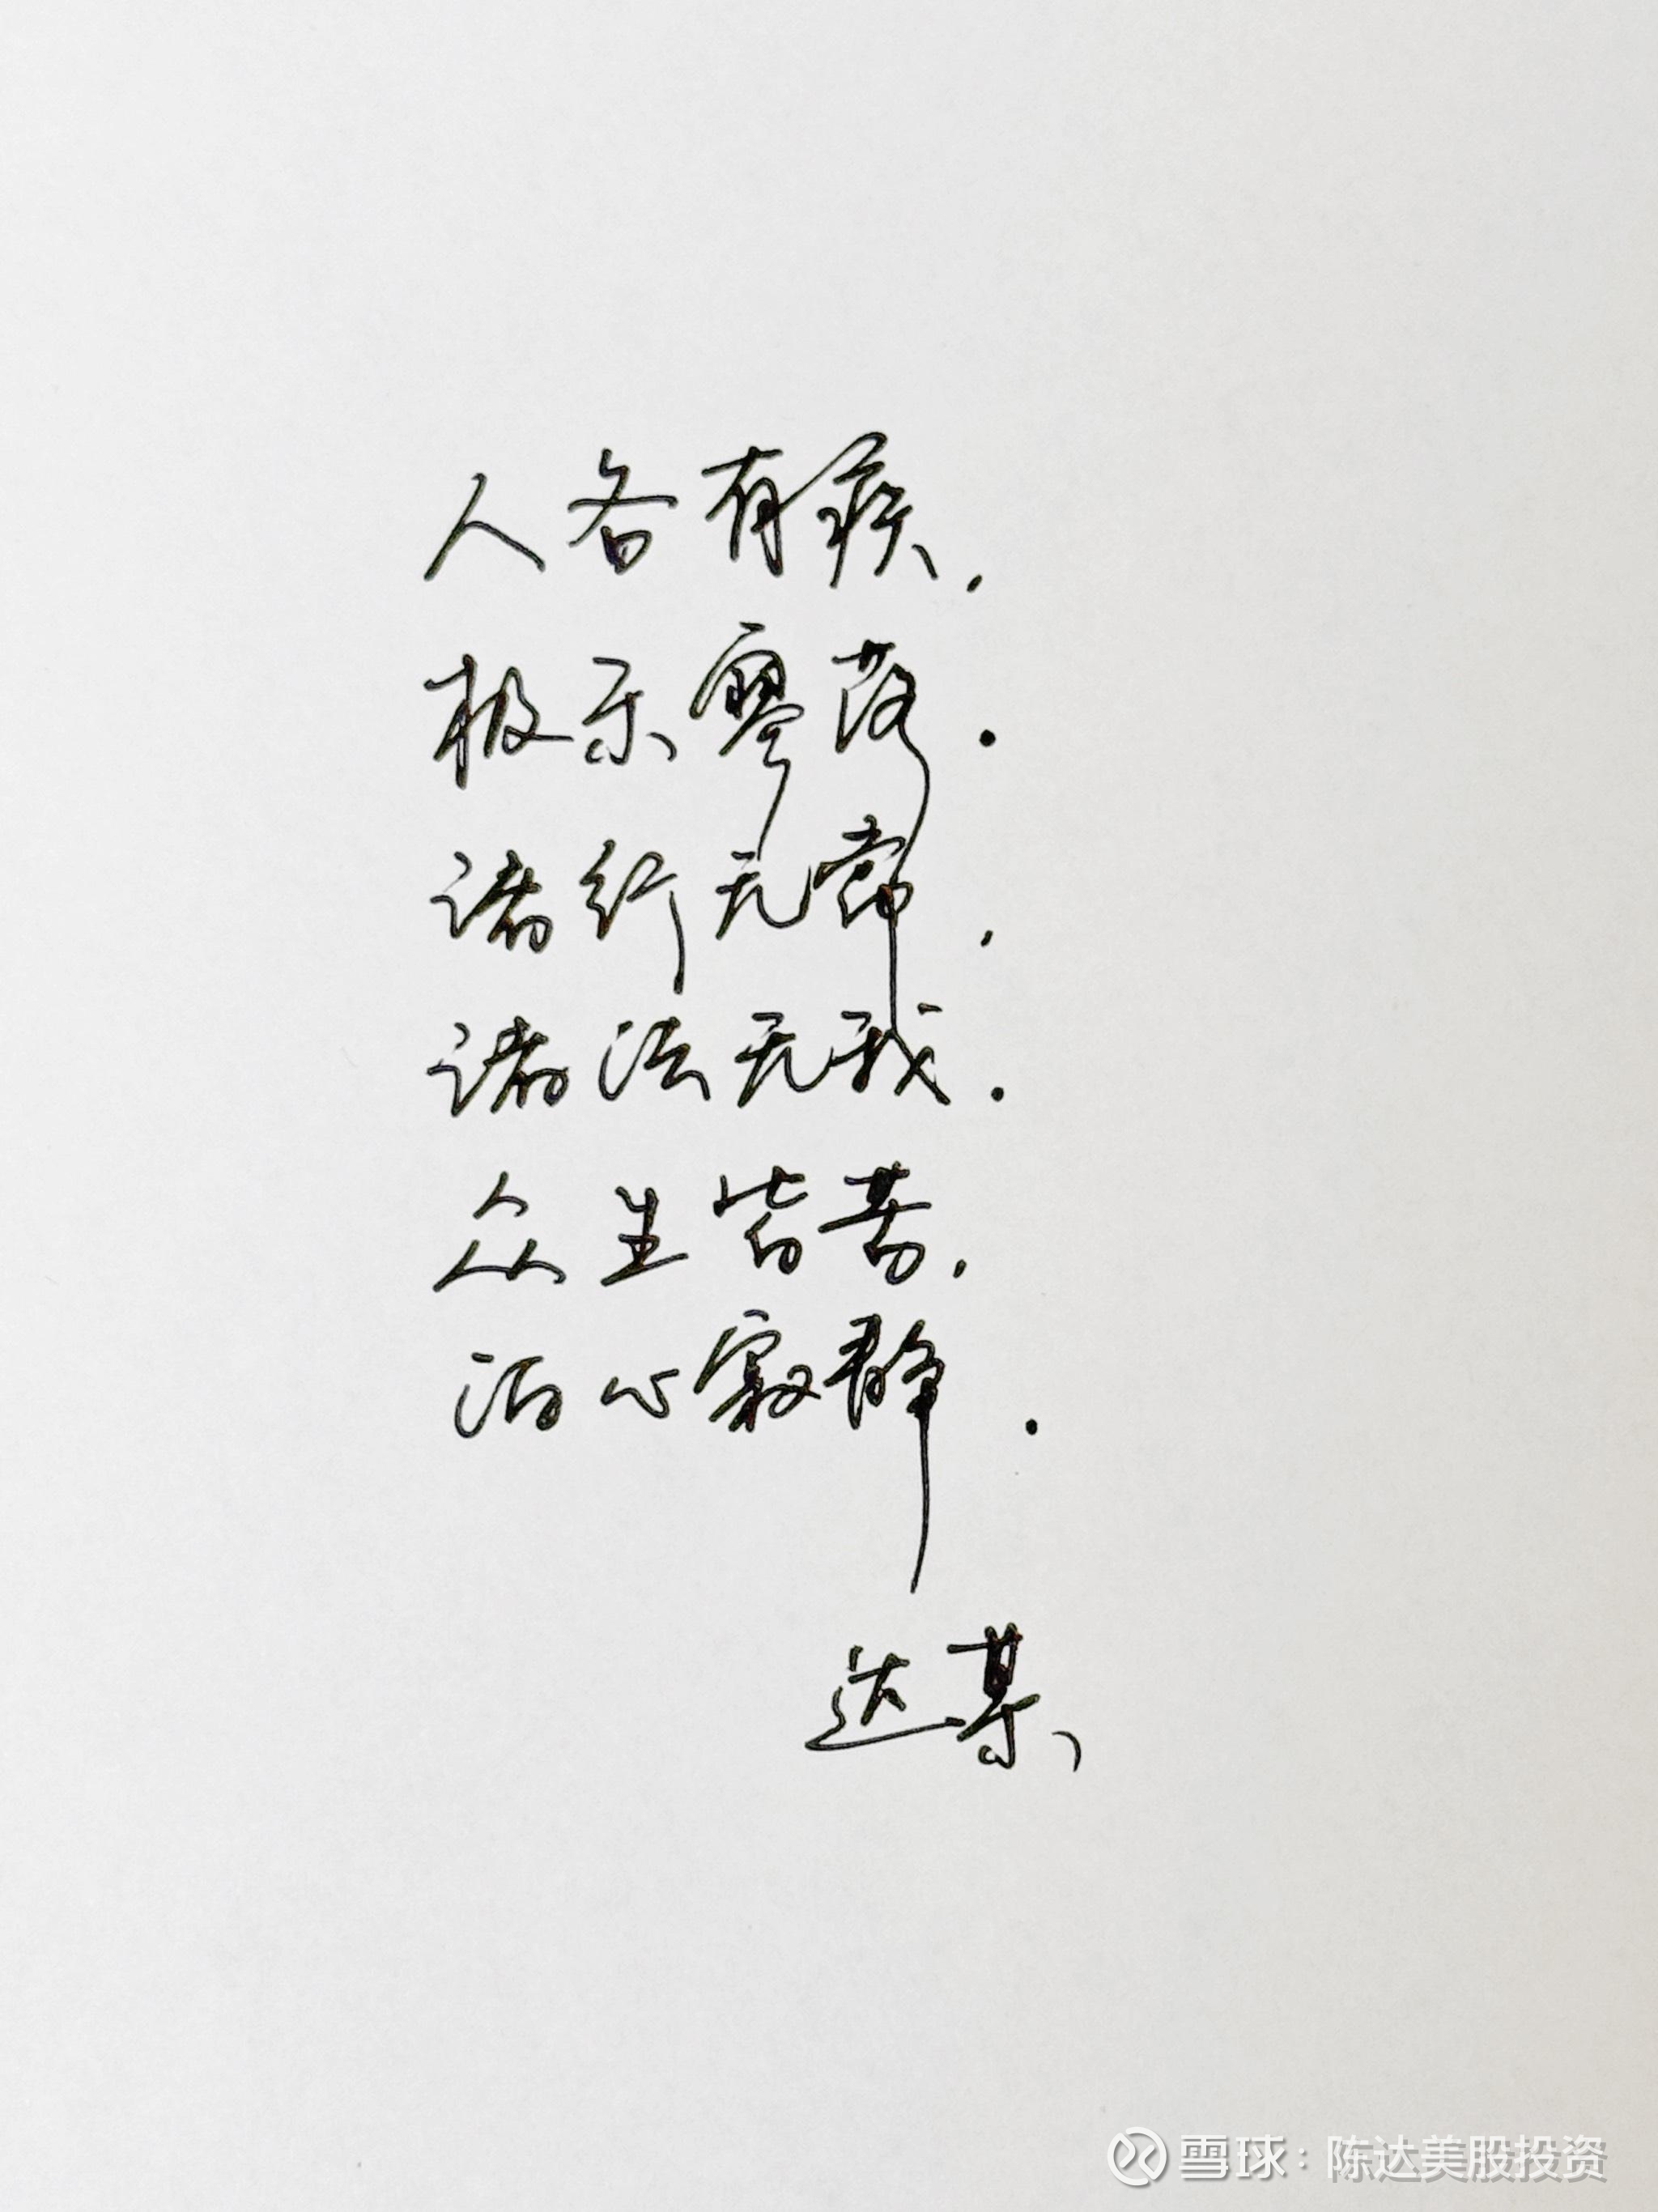 人各有疾，
极乐寥落．
诸行无常，
诸法无我．
众生皆苦，
泊心寂静．
达某
雪球：陈达美股投资